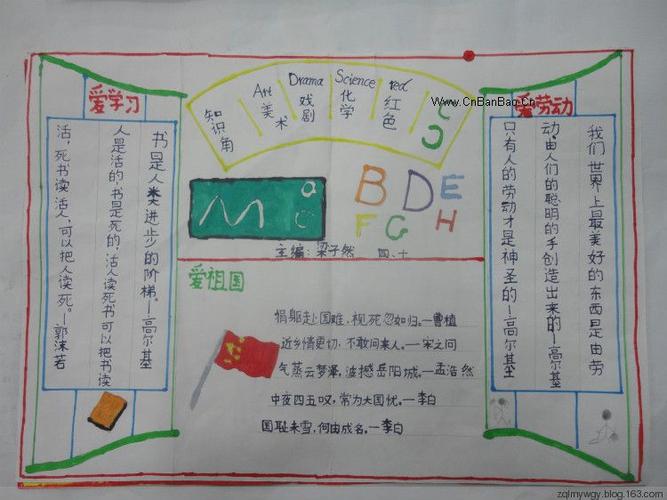 爱学习
书是人类进步的阶梯。—高尔基
人是活的,书是死的,活人读死书可以把书读
活,死书读活人,可以把人读死。—郭沫若
知识角
Art 美术
Drama 戏剧
Science 化学
red 红色
www.CnBanBao.Cn
BDE
FGH
主编:梁子然 四、十
爱祖国
捐躯赴国难,视死忽如归。—曹植
近乡情更切,不敢问来人。—宋之问
气蒸云梦泽,波撼岳阳城。—孟浩然
中夜四五叹,常为大国忧。—李白
国耻未雪,何由成名。—李白
爱劳动
我们世界上最美好的东西是由劳
动,由人们的聪明的手创造出来的—高尔基
只有人的劳动才是神圣的—高尔基
zqlmywgy.blog.163.com